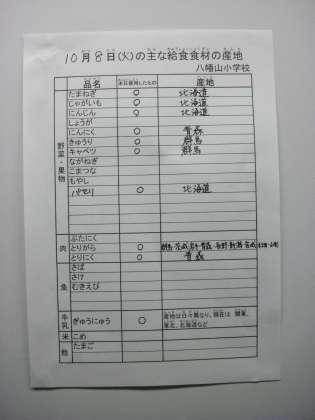 10月8日(火)の主な給食食材の産地
八幡山小学校
品名 本日使用したもの 産地
野菜・果物
たまねぎ ○ 北海道
じゃがいも ○ 北海道
にんじん ○ 北海道
しょうが
にんにく ○ 青森
きゅうり ○ 群馬
キャベツ ○ 群馬
ながねぎ
こまつな
もやし
パセリ ○ 北海道
肉
ぶたにく
とりがら ○
とりにく ○ 青森
魚
さば
さけ
むきえび
牛乳 ぎゅうにゅう ○ 産地は日々異なり、現在は 関東、
東北、北海道など
米 こめ
他 たまご